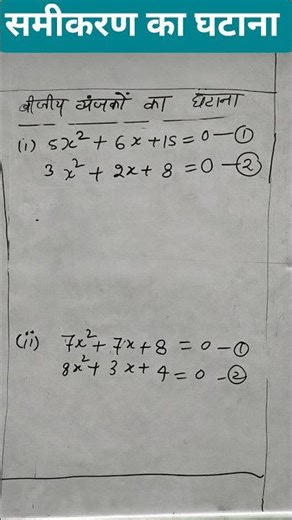 समीकरण का घटाना
बीजीय व्यंजकों का घटाना
(i) 5x² + 6x + 15 = 0 — ①
3x² + 2x + 8 = 0 — ②
(ii) 7x² + 7x + 8 = 0 — ①
8x² + 3x + 4 = 0 — ②